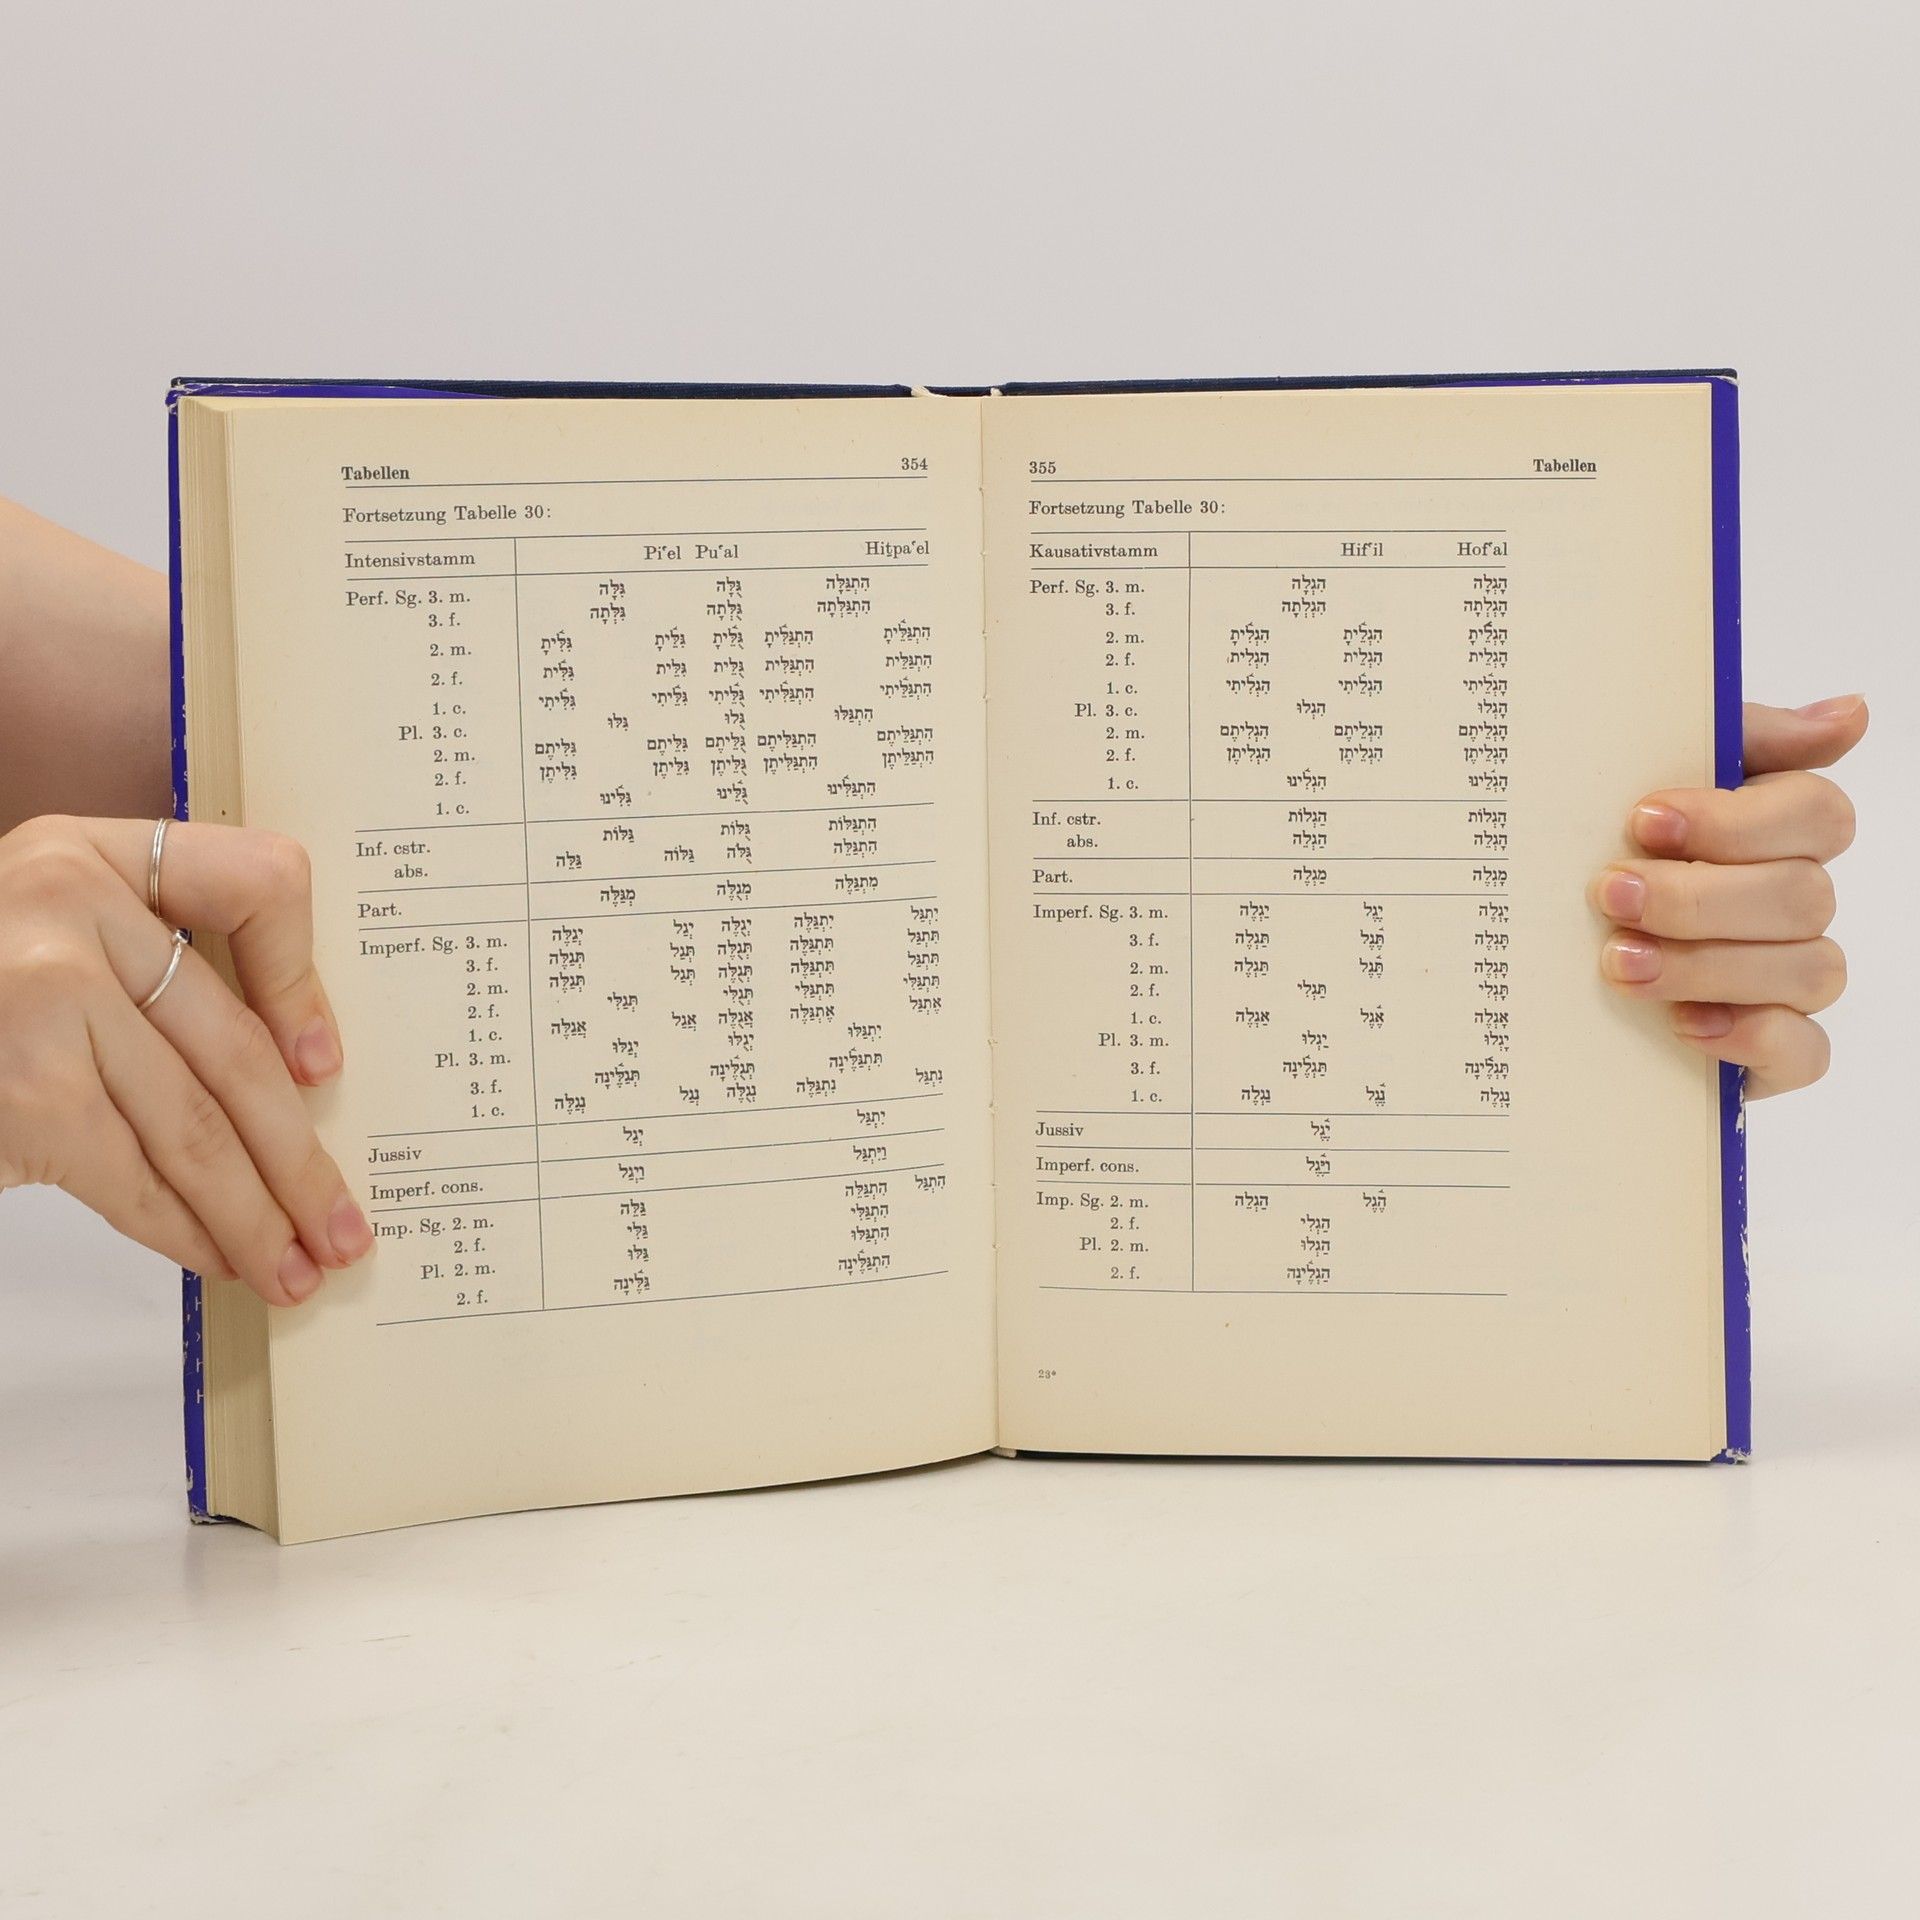 Tabellen 354
Fortsetzung Tabelle 30:
Intensivstamm Piʿel Puʿal Hiṯpaʿel
Perf. Sg. 3. m. גִּלָּה גֻּלָּה הִתְגַּלָּה
3. f. גִּלְּתָה גֻּלְּתָה הִתְגַּלְּתָה
2. m. גִּלִּ֫יתָ גִּלֵּ֫יתָ גֻּלֵּ֫יתָ הִתְגַּלִּ֫יתָ הִתְגַּלֵּ֫יתָ
2. f. גִּלִּית גִּלֵּית גֻּלֵּית הִתְגַּלִּית הִתְגַּלֵּית
1. c. גִּלִּ֫יתִי גִּלֵּ֫יתִי גֻּלֵּ֫יתִי הִתְגַּלִּ֫יתִי הִתְגַּלֵּ֫יתִי
Pl. 3. c. גִּלּוּ גֻּלּוּ הִתְגַּלּוּ
2. m. גִּלִּיתֶם גִּלֵּיתֶם גֻּלֵּיתֶם הִתְגַּלִּיתֶם הִתְגַּלֵּיתֶם
2. f. גִּלִּיתֶן גִּלֵּיתֶן גֻּלֵּיתֶן הִתְגַּלִּיתֶן הִתְגַּלֵּיתֶן
1. c. גִּלִּ֫ינוּ גֻּלֵּ֫ינוּ הִתְגַּלִּ֫ינוּ
Inf. cstr. גַּלּוֹת גֻּלּוֹת הִתְגַּלּוֹת
abs. גַּלֵּה גַּלּוֹה גֻּלֹּה הִתְגַּלֵּה
Part. מְגַלֶּה מְגֻלֶּה מִתְגַּלֶּה
Imperf. Sg. 3. m. יְגַלֶּה יְגַל יְגֻלֶּה יִתְגַּלֶּה יִתְגַּל
3. f. תְּגַלֶּה תְּגַל תְּגֻלֶּה תִּתְגַּלֶּה תִּתְגַּל
2. m. תְּגַלֶּה תְּגַל תְּגֻלֶּה תִּתְגַּלֶּה תִּתְגַּל
2. f. תְּגַלִּי תְּגֻלִּי תִּתְגַּלִּי תִּתְגַּלִּי
1. c. אֲגַלֶּה אֲגַל אֲגֻלֶּה אֶתְגַּלֶּה אֶתְגַּל
Pl. 3. m. יְגַלּוּ יְגֻלּוּ יִתְגַּלּוּ
3. f. תְּגַלֶּ֫ינָה תְּגֻלֶּ֫ינָה תִּתְגַּלֶּ֫ינָה
1. c. נְגַלֶּה נְגַל נְגֻלֶּה נִתְגַּלֶּה נִתְגַּל
Jussiv יְגַל יִתְגַּל
Imperf. cons. וַיְגַל וַיִּתְגַּל
Imp. Sg. 2. m. גַּלֵּה הִתְגַּלֵּה הִתְגַּל
2. f. גַּלִּי הִתְגַּלִּי
Pl. 2. m. גַּלּוּ הִתְגַּלּוּ
2. f. גַּלֶּ֫ינָה הִתְגַּלֶּ֫ינָה
355 Tabellen
Fortsetzung Tabelle 30:
Kausativstamm Hifʿil Hofʿal
Perf. Sg. 3. m. הִגְלָה הָגְלָה
3. f. הִגְלְתָה הָגְלְתָה
2. m. הִגְלִ֫יתָ הִגְלֵ֫יתָ הָגְלֵ֫יתָ
2. f. הִגְלִית הִגְלֵית הָגְלֵית
1. c. הִגְלִ֫יתִי הִגְלֵ֫יתִי הָגְלֵ֫יתִי
Pl. 3. c. הִגְלוּ הָגְלוּ
2. m. הִגְלִיתֶם הִגְלֵיתֶם הָגְלֵיתֶם
2. f. הִגְלִיתֶן הִגְלֵיתֶן הָגְלֵיתֶן
1. c. הִגְלִ֫ינוּ הָגְלֵ֫ינוּ
Inf. cstr. הַגְלוֹת הָגְלוֹת
abs. הַגְלֵה הָגְלֵה
Part. מַגְלֶה מָגְלֶה
Imperf. Sg. 3. m. יַגְלֶה יֶגֶל יָגְלֶה
3. f. תַּגְלֶה תֶּ֫גֶל תָּגְלֶה
2. m. תַּגְלֶה תֶּ֫גֶל תָּגְלֶה
2. f. תַּגְלִי תָּגְלִי
1. c. אַגְלֶה אֶ֫גֶל אָגְלֶה
Pl. 3. m. יַגְלוּ יָגְלוּ
3. f. תַּגְלֶ֫ינָה תָּגְלֶ֫ינָה
1. c. נַגְלֶה נֶ֫גֶל נָגְלֶה
Jussiv יֶ֫גֶל
Imperf. cons. וַיֶּ֫גֶל
Imp. Sg. 2. m. הַגְלֵה הֶ֫גֶל
2. f. הַגְלִי
Pl. 2. m. הַגְלוּ
2. f. הַגְלֶ֫ינָה
23*